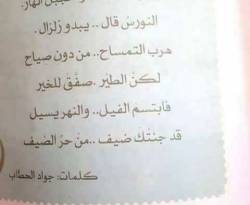 النورس قال .. يبدو زلزال .
هرب التمساح .. من دون صياح
لكن الطير . صفق للخير
فابتسم الفيل .. والنهر يسيل
قد جئتك ضيف .. من حر الصيف
كلمات: جواد الحطاب